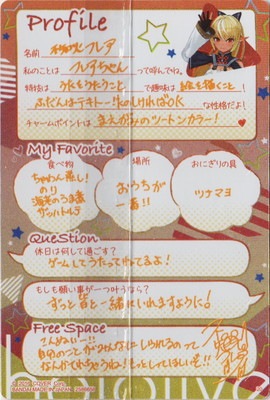 Profile
名前 不知火フレア
私のことは フレアちゃん って呼んでね。
特技は うたをうたうこと で趣味は 絵を描くこと!
ふだんはテキトー!たのしければOK な性格だよ!
チャームポイントは まえがみのツートンカラー!
My Favorite
食べ物
ちゃわん蒸し!
のり
海老のうま煮
ザッハトルテ
場所
おうちが
一番!!
おにぎりの具
ツナマヨ
Question
休日は何して過ごす?
ゲームしてうたってねてるよ!
もしも願い事が一つ叶うなら?
ずっと皆と一緒にいれますように!
Free Space
こんぬい〜!!
自分のことがみんなにしられるのって
なんかてれちゃうね!もっとしてほしい!
BANDAI MADE IN JAPAN
hololive